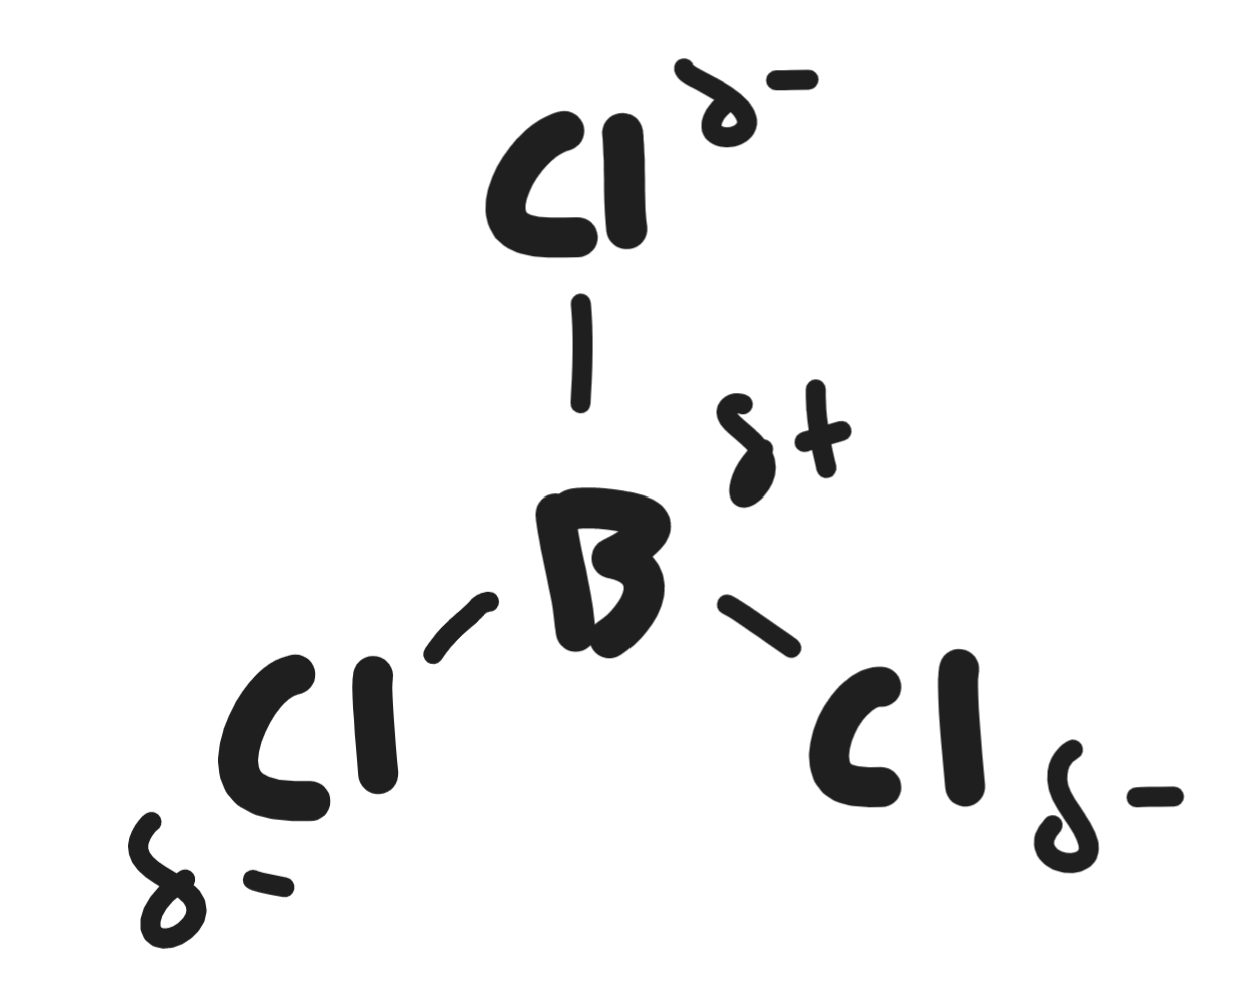 Cl δ-
B δ+
Cl Cl
δ- δ-